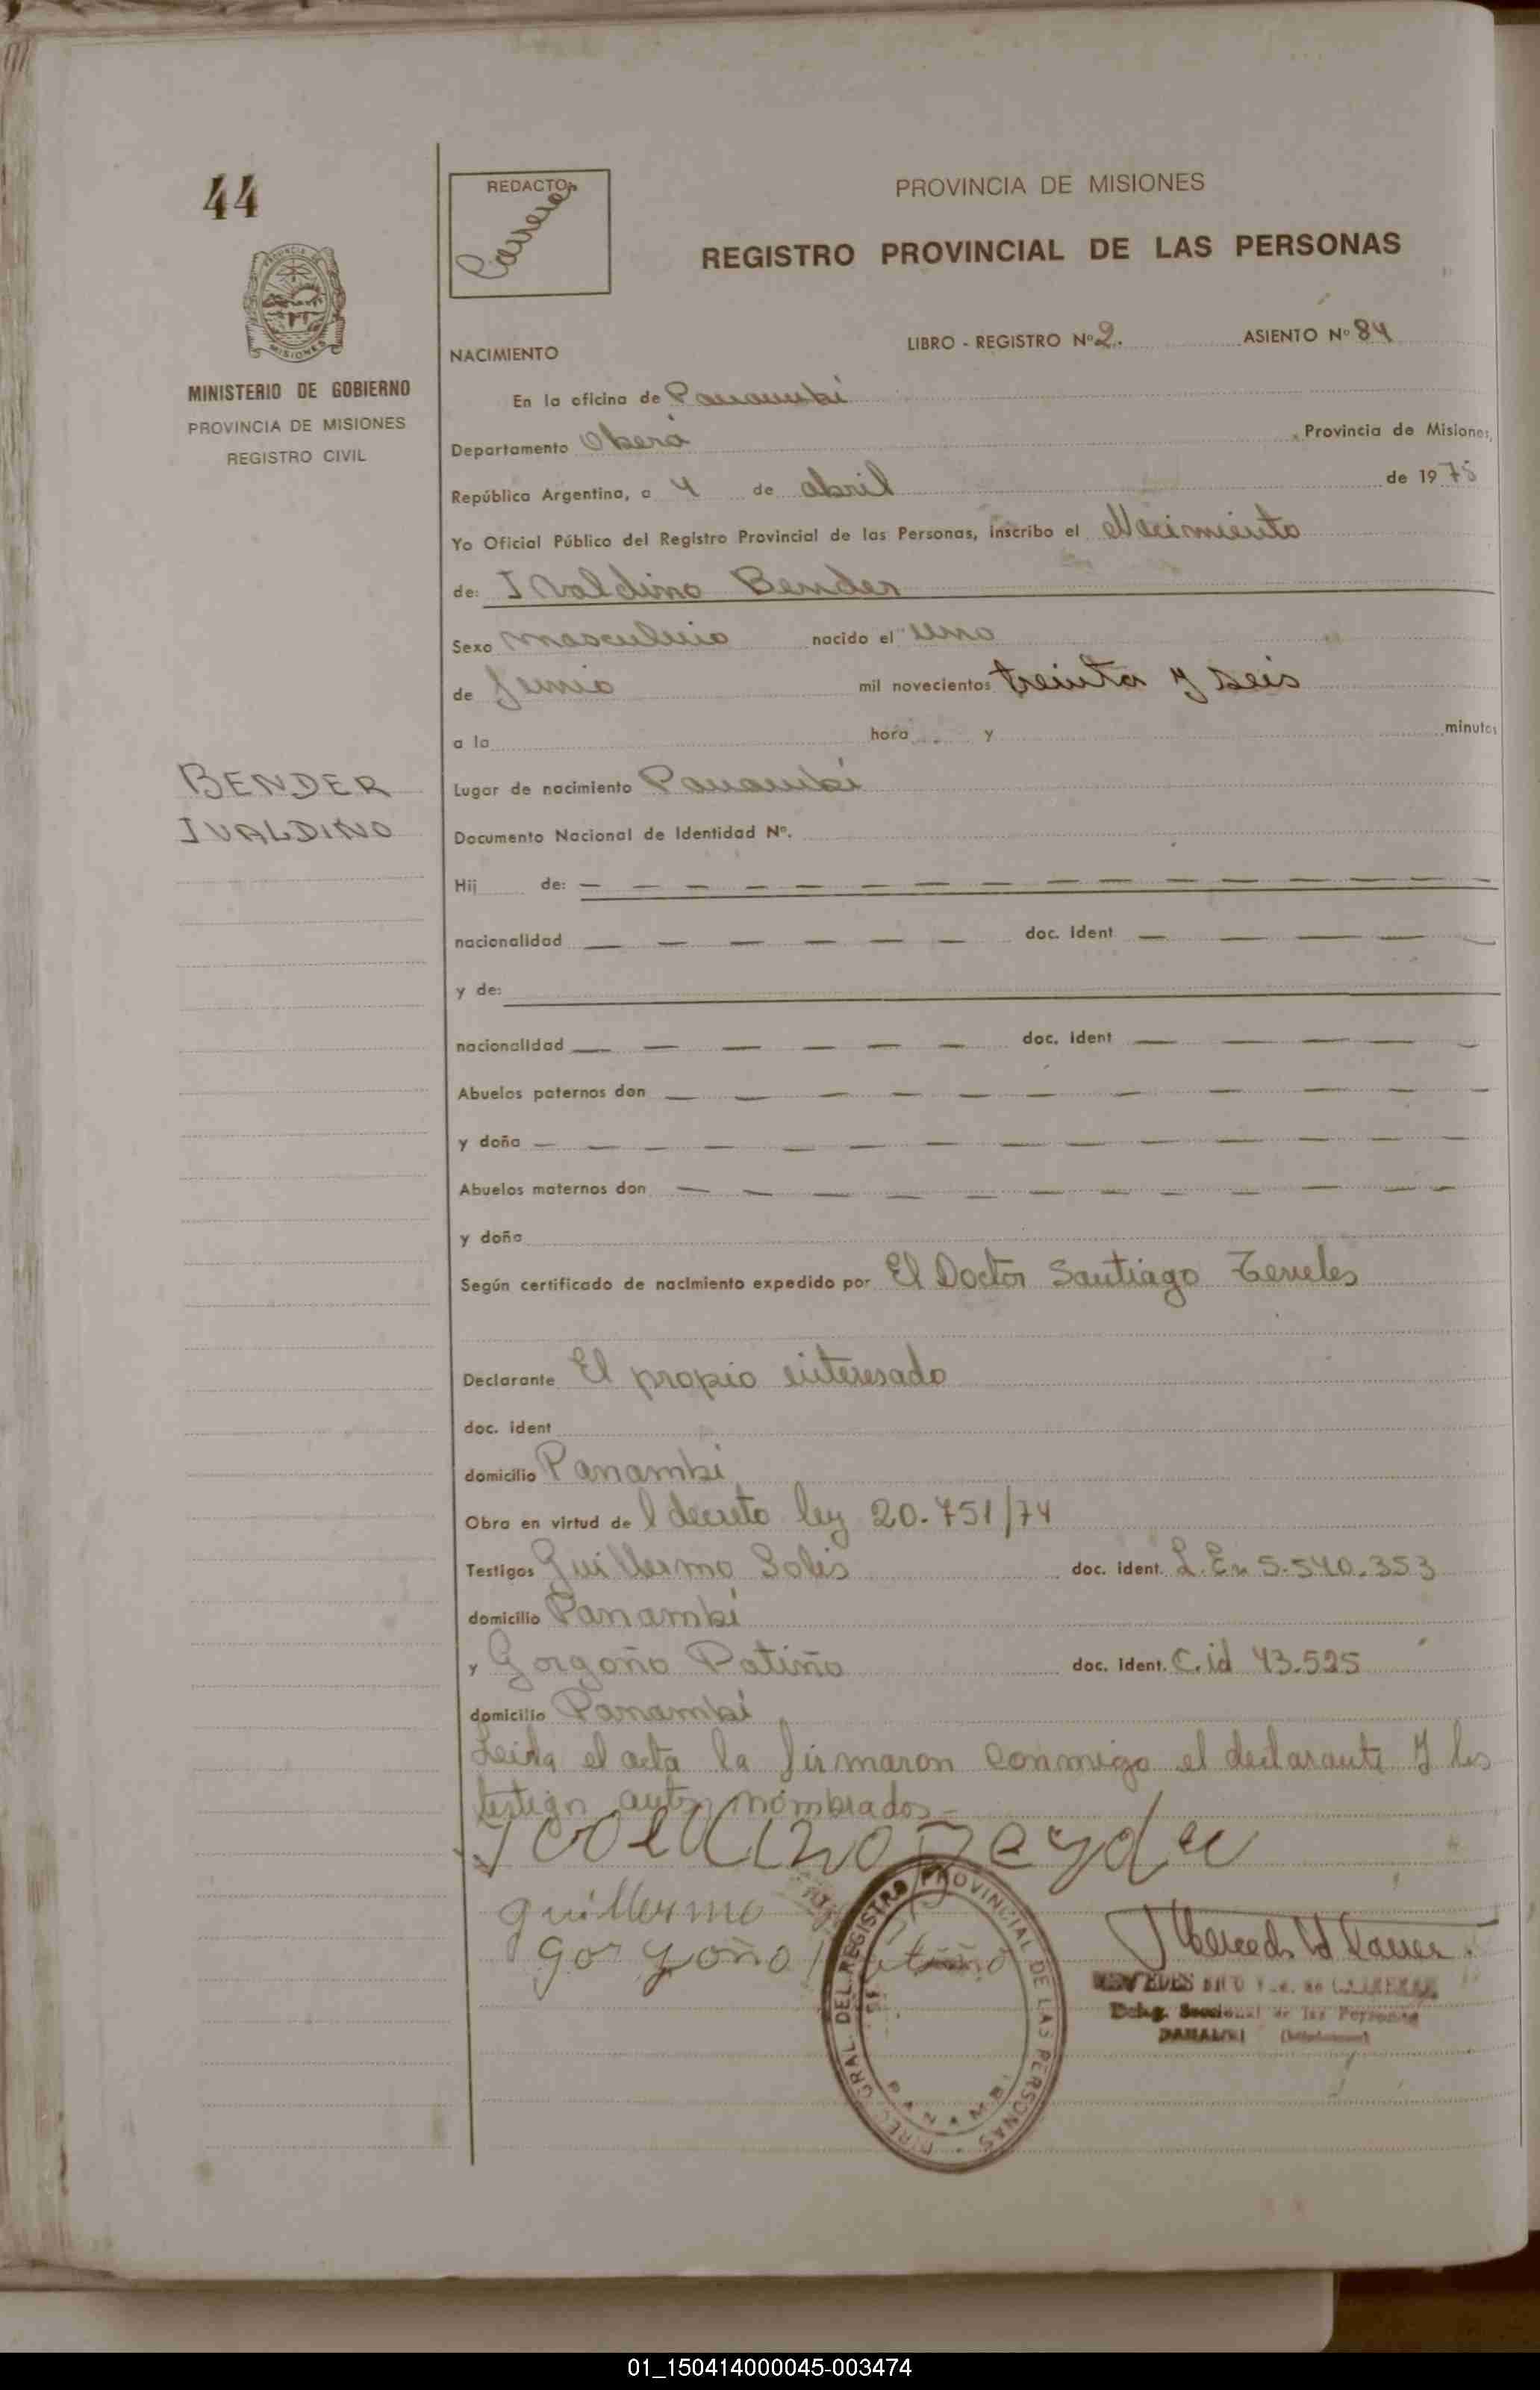 44
REDACTOR
Carrera
PROVINCIA DE MISIONES
REGISTRO PROVINCIAL DE LAS PERSONAS
PROVINCIA DE
MISIONES
MINISTERIO DE GOBIERNO
PROVINCIA DE MISIONES
REGISTRO CIVIL
NACIMIENTO
LIBRO - REGISTRO Nº 2. ASIENTO Nº 84
En la oficina de Panambí
Departamento Oberá Provincia de Misiones,
República Argentina, a 4 de abril de 1975
Yo Oficial Público del Registro Provincial de las Personas, inscribo el Nacimiento
de: Ivaldino Bender
Sexo masculino nacido el uno
de Junio mil novecientos treinta y seis
a la hora y minutos
BENDER
IVALDINO
Lugar de nacimiento Panambí
Documento Nacional de Identidad Nº.
Hij de: — — — — — — — — — — — — — —
nacionalidad — — — — — — doc. ident — — — —
y de:
nacionalidad — — — — — — doc. ident — — — —
Abuelos paternos don — — — — — — — — — — —
y doña — — — — — — — — — — — — —
Abuelos maternos don — — — — — — — — — — —
y doña
Según certificado de nacimiento expedido por El Doctor Santiago
Declarante El propio interesado
doc. ident
domicilio Panambí
Obra en virtud de l decreto ley 20.751/74
Testigos Guillermo Solis doc. ident. L.E. 5.540.353
domicilio Panambí
y Gorgoño Patiño doc. ident. C.id 43.525
domicilio Panambí
Leida el acta la firmaron conmigo el declarante y los
testigos antes nombrados.-
Guillermo
Gorgoño Patiño
DIREC. GRAL. DEL REGISTRO PROVINCIAL DE LAS PERSONAS
PANAMBI
Deleg. Seccional de las Personas
PANAMBI (Misiones)
01_150414000045-003474